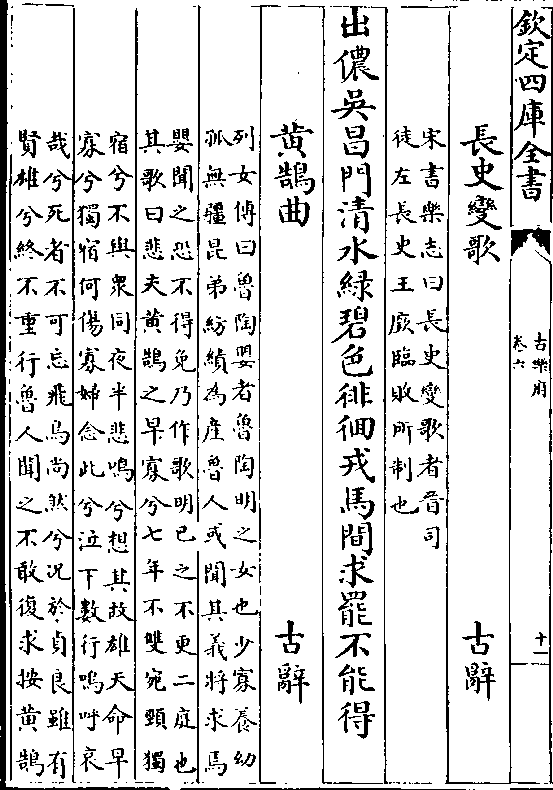 欽定四庫全書
古樂府
卷六
十一
長史變歌 古辭
宋書樂志曰長史變歌者晉司
徒左長史王廞臨敗所制也
出儂吳昌門清水綠碧色徘徊戎馬間求罷不能得
黄鵠曲 古辭
列女傳曰魯陶嬰者魯陶明之女也少寡養幼
孤無疆昆弟紡績為產魯人或聞其義將求焉
嬰聞之恐不得免乃作歌明已之不更二庭也
其歌曰悲夫黄鵠之早寡兮七年不雙宛頸獨
宿兮不與衆同夜半悲鳴兮想其故雄天命早
寡兮獨宿何傷寡婦念此兮泣下數行嗚呼哀
哉兮死者不可忘飛鳥尚然兮況於貞良雖有
賢雄兮終不重行魯人聞之不敢復求按黄鵠